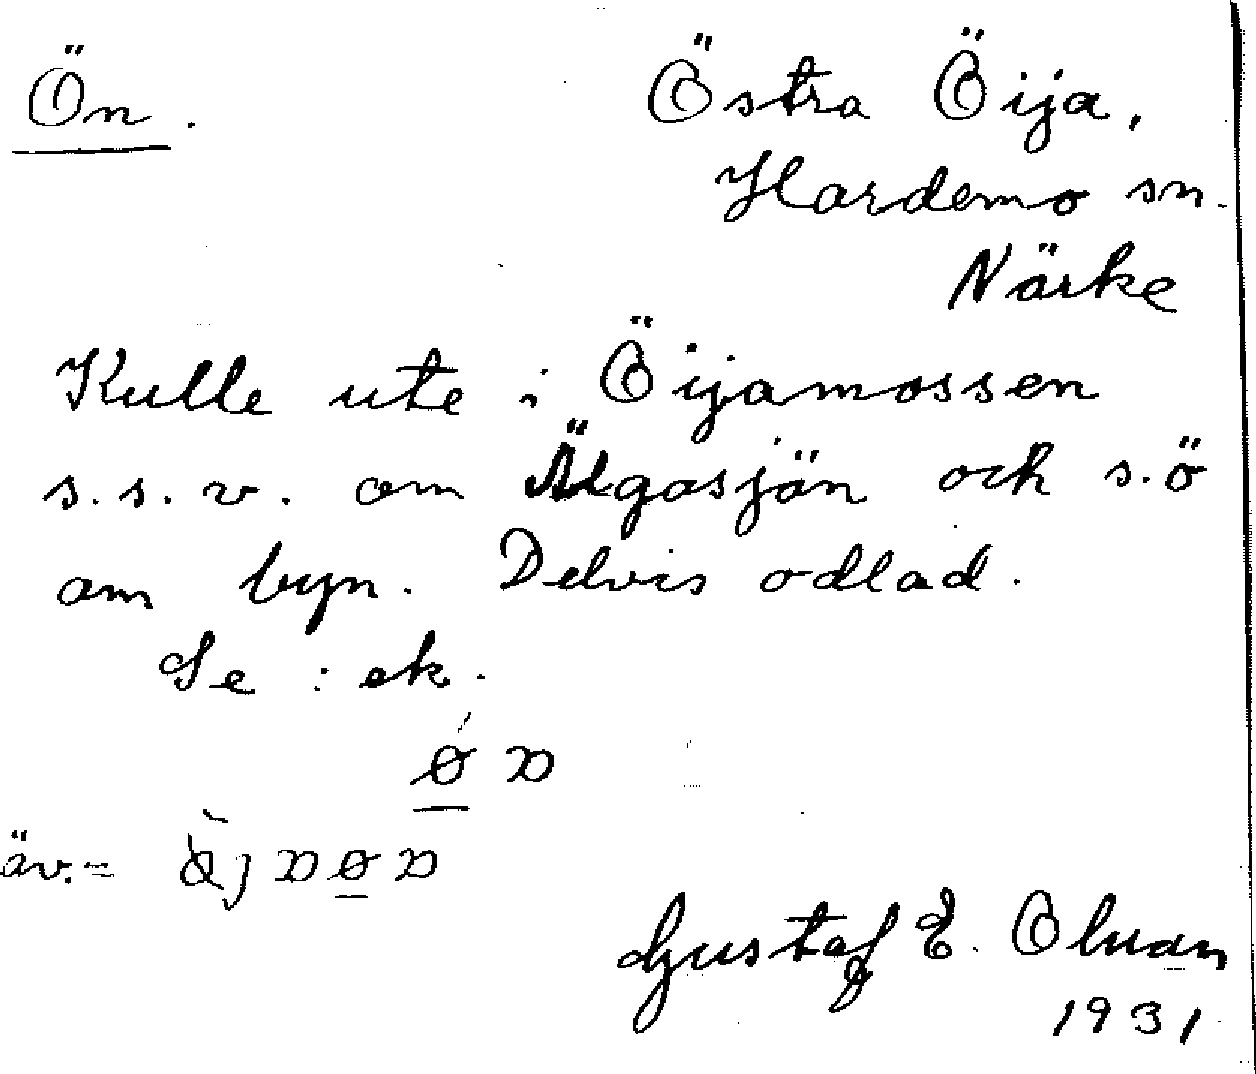 Ön. Östra Öija,
Hardemo sn.
Närke
Kulle ute i Öijamossen
s.s.v. om Älgasjön och s.ö
om byn. Delvis odlad.
Se : ek.
äv. =
Gustaf E.
1931